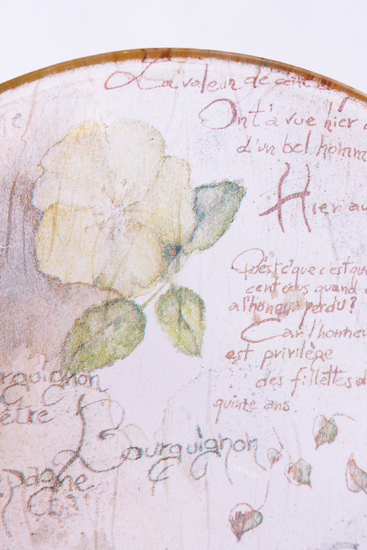 La valeur de cette
Ont'a vue hier
d'un bel homm
Hier au
Qu'est c'que c'est qu
cent écus quand
a l'honeur perdu?
Car l'honneu
est privilège
des fillettes d
quinze ans.
rguignon
être
Bourguignon
pagne